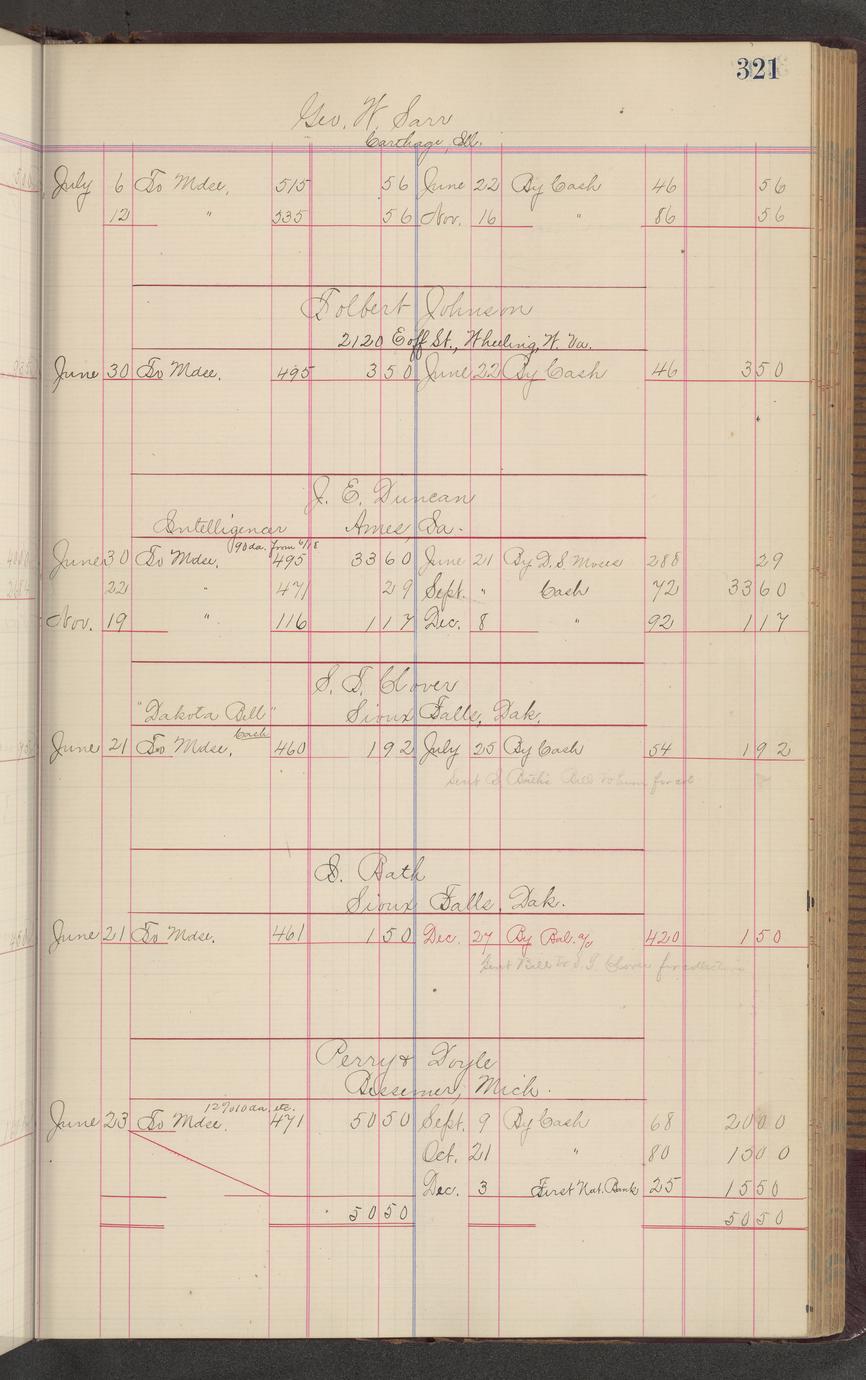 321
Geo. W. Sarr
Carthage, Ill.
July 6 To Mdse. 515 56 June 22 By Cash 46 56
12 " 535 56 Nov. 16 " 86 56
Tolbert Johnson
2120 Eoff St., Wheeling, W. Va.
June 30 To Mdse. 495 350 June 22 By Cash 46 350
J. E. Duncan
Intelligencer Ames, Ia.
90 da. from 6/18
June 30 To Mdse. 495 3360 June 21 By D. S. Moses 288 29
22 " 471 29 Sept. " Cash 72 3360
Nov. 19 " 116 117 Dec. 8 " 92 117
S. T. Clover
"Dakota Bell" Sioux Falls, Dak.
Cash
June 21 To Mdse. 460 192 July 25 By Cash 54 192
Sent S. Bath's Bill to him for col
S. Bath
Sioux Falls, Dak.
June 21 To Mdse. 461 150 Dec. 27 By Bal. a/c 420 150
Sent Bill to S. T. Clover for collection
Perry & Doyle
Bessemer, Mich.
10 da. etc.
June 23 To Mdse. 471 5050 Sept. 9 By Cash 68 2000
Oct. 21 " 80 1500
Dec. 3 First Nat. Bank 25 1550
5050 5050